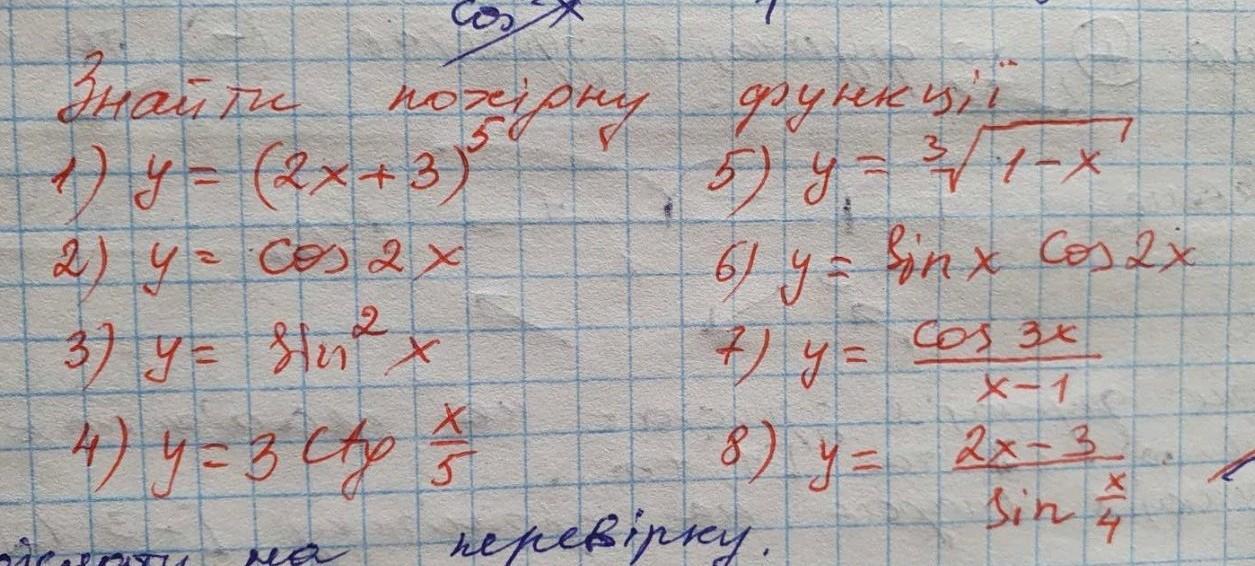 cos² x 1
Знайти похірну функції
1) y = (2x+3)⁵
2) y = cos 2x
3) y = sin² x
4) y = 3 ctg x/5
5) y = ∛(1-x)
6) y = sin x cos 2x
7) y = cos 3x / x-1
8) y = 2x-3 / sin x/4
на перевірку.